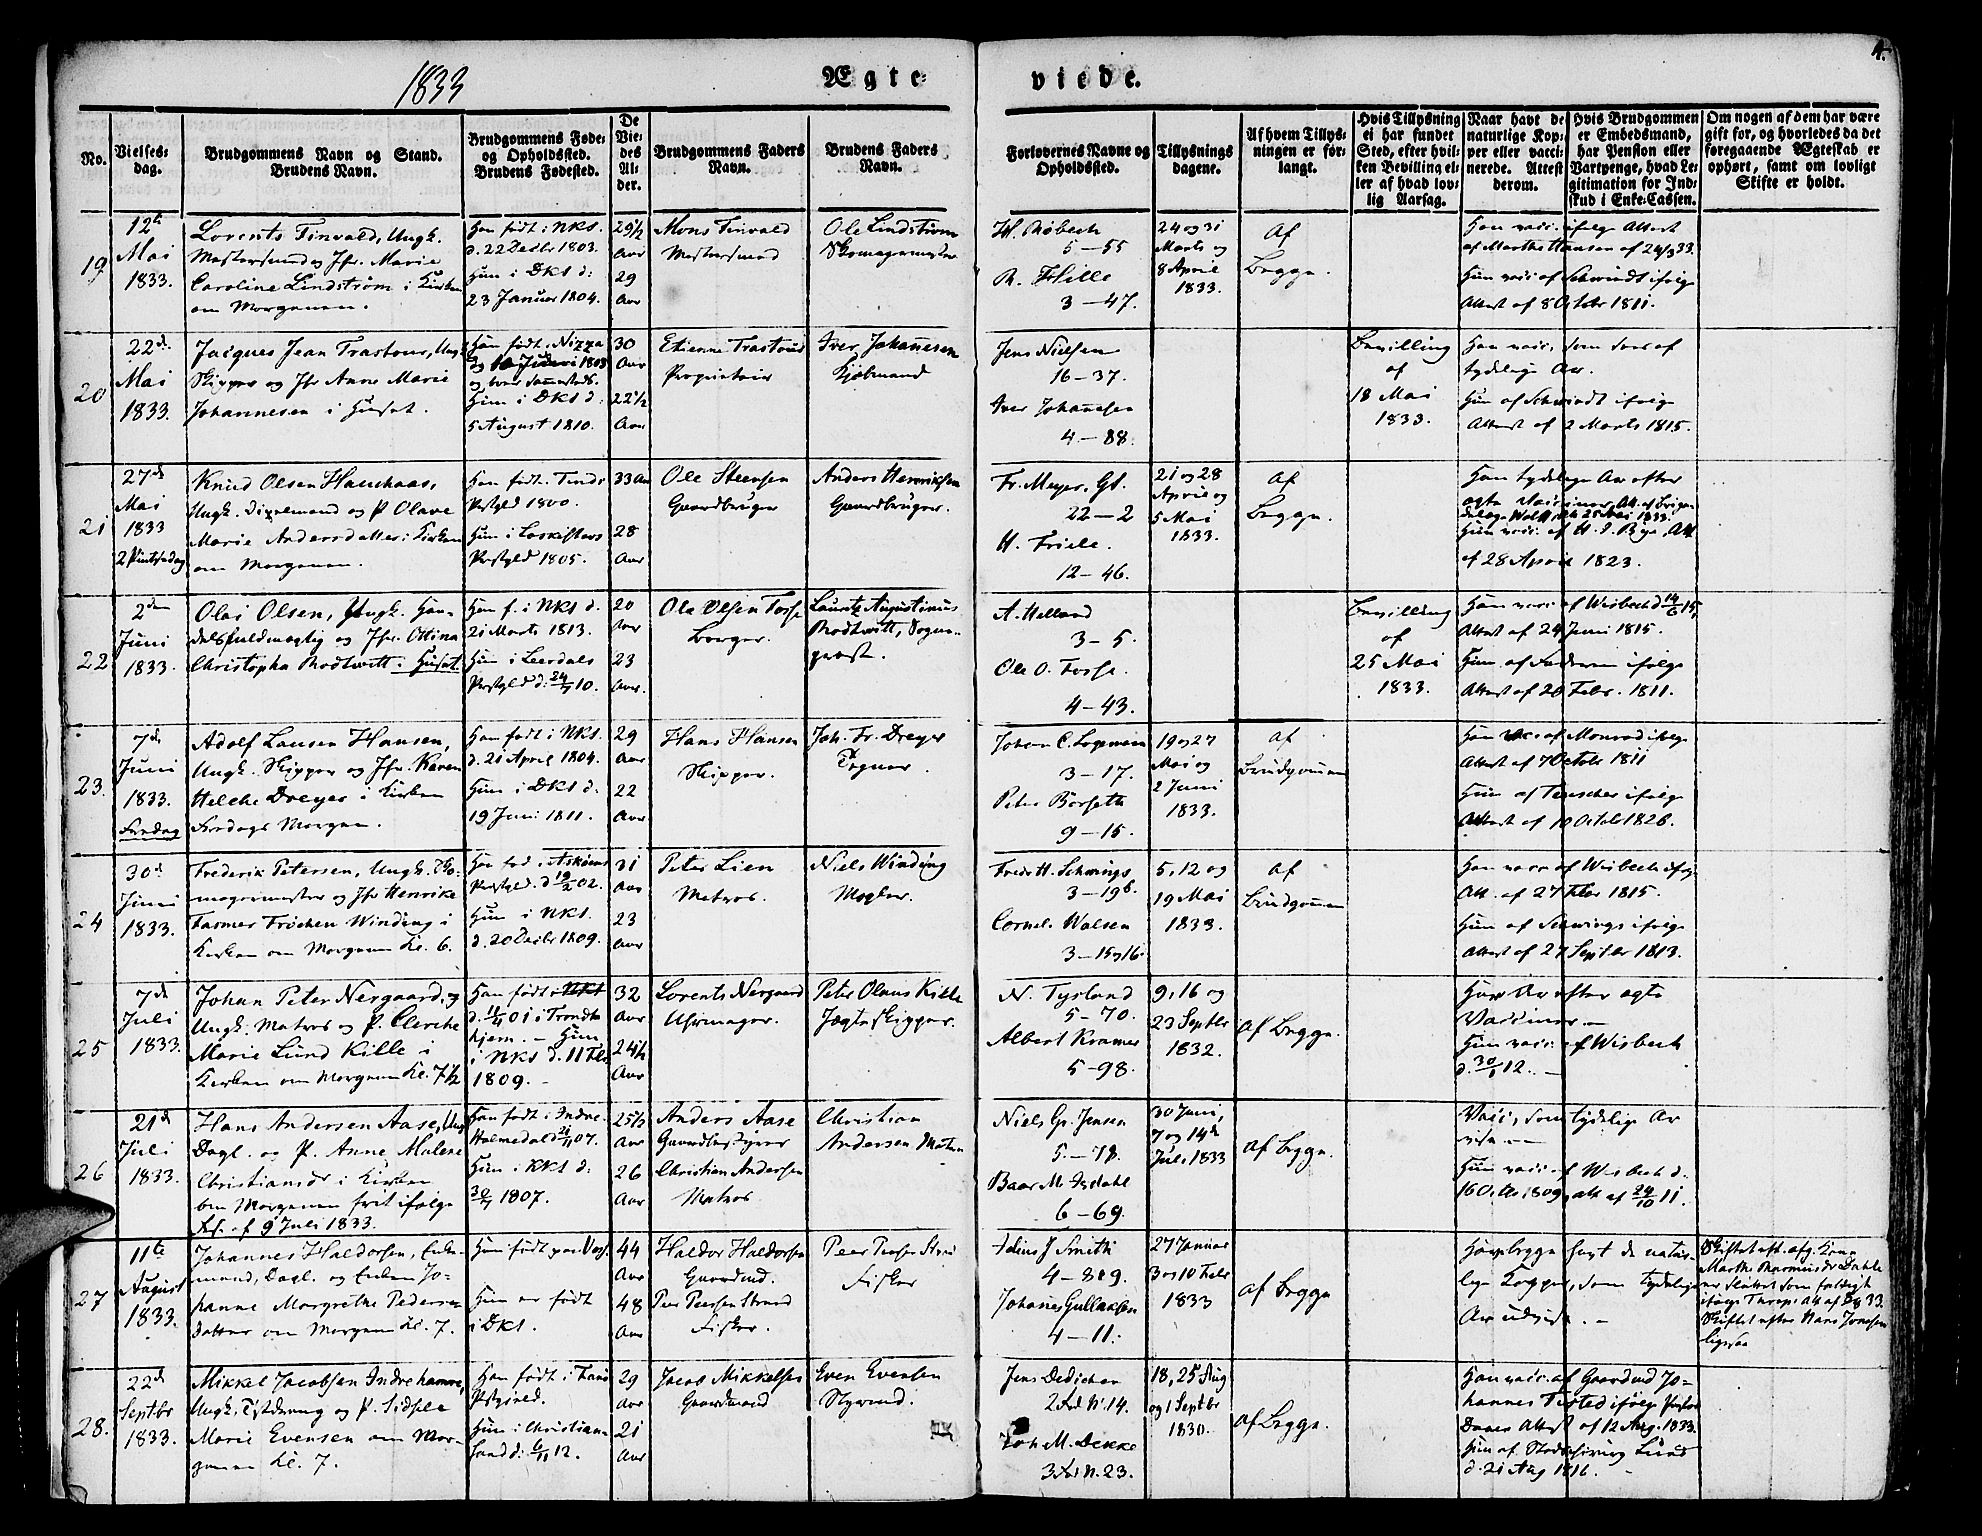 1833
Ægte-
viede.
4.
No.
Vielses-
dag.
Brudgommens Navn og Stand.
Brudens Navn.
Brudgommens Føde-
og Opholdssted.
Brudens Fødested.
De
Vie-
des
Al-
der.
Brudgommens Faders
Navn.
Brudens Faders
Navn.
Forlovernes Navne og
Opholdssted.
Tillysnings
dagene.
Af hvem Tillys-
ningen er for-
langt.
Hvis Tillysning
ei har fundet
Sted, efter hvil-
ken Bevilling el-
ler af hvad lov-
lig Aarsag.
Naar havt de
naturlige Kop-
per eller vacci-
nerede. Attest
derom.
Hvis Brudgommen
er Embedsmand,
har Pension eller
Vartpenge, hvad Le-
gitimation for Ind-
skud i Enke-Cassen.
Om nogen af dem har være
gift før, og hvorledes da det
foregaaende Ægteskab er
ophørt, samt om lovligt
Skifte er holdt.
19
12te
Mai
1833.
Lorents Tinvald, Ungk.
og Jfr. Marie
Caroline Lindstrøm i Kirken
om Morgenen.
Han født i NKS.
d. 22 Decbr 1803.
Hun i DKS d:
23 Januar 1804.
29½
Aar
29
Aar
Mons Tinvald
Ole Lindstrøm
Skomagermester
5-55
3-47.
24 og 31
Marts og
8 April
1833.
Af
Begge.
Han vacc. ifølge Attest
af Marthe Hansen af 24/3 33.
Hun vacc. af Schwindt ifølge
Attest af 8 Octbr 1811.
20
22de
Mai
1833.
Jacques Jean Trastour, Ungk.
Skipper og Jfr Anne Marie
Johannesen i Huset.
Han født i Nizza
Hun i DKS d.
5 August 1810.
30
Aar
22½
Aar
Etienne Trastour
Proprietair
Iver Johannesen
Kjøbmand
Jens Nielsen
16-37.
Iver Johannesen
4-88.
Bevilling
af
18 Mai
1833.
Han vacc. som sees af
tydelige Ar.
Hun af Schwindt ifølge
Attest af 2 Marts 1815.
21
27de
Mai
1833
2 Pintsedag
Knud Olsen Hauchaas,
Ungk. og P. Olave
Marie Andersdatter i Kirken
om Morgenen.
Han født i Tinds
Præstgld 1800.
Præstgld 1805.
33 Aar
28
Aar
Ole Steensen
Gaardbruger
Anders Henriksen
Gaardbruger.
Fr. Meyer, Gt.
22-2
H. Friele.
12-46.
21 og 28
April og
5 Mai
1833.
af
Begge.
Han tydelige Ar efter
Hun vacc. af H. J. Bye, Att
af 28 April 1823.
22
2den
Juni
1833.
Olai Olsen, Ungk. Han-
delsfuldmægtig og Jfr. Ottina
Christopha Rodtwitt i Huset.
Han f. i NKS d.
21 Marts 1813.
Hun i Leerdals
Præstgld d. 24/7 10.
20
Aar
23
Aar.
Ole Olsen Fosse
Borger.
Lauritz Augustinus
Rodtwitt, Sogne-
præst.
A. Helland
3-5.
Ole O. Fosse.
4-43.
Bevilling
af
25 Mai
1833.
Han vacc. af Wisbech d 14/6 15,
Attest af 24 Juni 1815.
Hun af Faderen ifølge
Attest af 20 Febr. 1811.
23.
7de
Juni
1833.
Fredag
Adolf Lausen Hansen,
Ungk. Skipper og Jfr. Karen
Helche Dreyer i Kirken
Fredags Morgen.
Han født i NKS.
d. 21 April 1804.
Hun i DKS d.
19 Juni 1811.
29
Aar
22
Aar
Hans Hansen
Skipper.
Joh. Fr. Dreyer
Tegner.
3-17.
Peter Børseth
9-15.
19 og 27
Mai og
2 Juni
1833.
af
Brudgommen
Han vacc af Monrad ifølge
Attest af 7 Octobr 1811
Hun af Teuscher ifølge
Attest af 10 Octobr 1826.
24
30te
Juni
1833.
Frederik Petersen, Ungk. Sko-
magermester og Jfr Henrike
Winding i
Kirken om Morgenen Kl. 6.
Han fød i Askøens
Præstgld. d 19/2 02.
Hun i NKS.
d. 20 Decbr 1809.
31
Aar
23
Aar
Peter Lien
Matros.
Niels Winding
Mægler.
Fredr H. Schwings
3-196.
Cornel. Walsen
3-15 og 16.
5, 12 og
19 Mai
1833.
af
Brudgommen
Han vacc af Wisbech ifølg
Att. af 27 Febr 1815.
Hun af Schwings ifølge
Attest af 27 Septbr 1813.
25
7de
Juli
1833.
Johan Peter Nergaard, og
Ungk. Matros og P. Clerche
Marie Lund Kille i
Kirken om Morgenen Kl. 7½
Han født i NKS
d. 11/4 01 i Trondh
hjem. - Hun
i NKS d. 11 Febr
1809. -
32
Aar
24½
Aar
Lorents Nergaard
Uhrmager.
Peter Olaus Kille
Jægteskipper.
N. Tysland
5-70.
Albert Kramer
5-98.
9, 16 og
23 Septbr
1832.
af Begge.
Har Ar efter ægte
Vacciner. -
Hun vacc. af Wisbech
d. 30/1 12. -
26
21de
Juli
1833.
Hans Andersen Aase, Ung
Dagl. og P. Anne Malene
Christiansdr i Kirken
om Morgenen frit ifølge
Att. af 9 Juli 1833.
Han født i Indre
Holmedal d 21/11 07.
Hun i KKS d:
30/4 1807.
25½
Aar
26
Aar
Anders Aase
Christian Andersen
Matros
Christian
Andersen Matros
Niels Gr. Jensen
5.-78.
Baar M. Isdahl
6-69.
30 Juni,
7 og 14de
Juli 1833
af Begge.
Vacc, som tydelige Ar
vise. -
Hun vacc. af Wisbech d.
16 Octbr 1809, att af 24/10 11.
27
11te
August
1833.
Johannes Haldorsen, Enke-
mand, Dagl. og Enken Jo-
hanne Margrethe Peders-
datter om Morgenen Kl. 7.
Han født paa Voss.
Hun er født
i DKS.
44
Aar
48
Aar
Haldor Haldorsen
Gaardmd.
Peer Peersen Strand
Fisker.
Peer Peersen Strand
Fisker
J Smith
4-809.
Johannes Gullaksen
4-11.
27 Januar
3 og 10 Febr
1833
af Begge
Have begge havt de natur-
lige Kopper, som tydelige
Ar udvise. -
Skiftet eft. afg. Kone
Marthe Rasmusdr Dahle
er sluttet som
Skiftet efter Hans Jonesen
ligesaa
28.
22de
Septbr
1833.
Mikkel Jacobsen Indrehamre,
Ungk. og P. Sidsele
Marie Evensen om Mor-
genen Kl. 7.
Han født i Fane
Præstgield.
Hun i Christian-
sand d. 6/11 12.
29
Aar
21
Aar
Jacob Mikkelsen
Gaardmand
Even Evensen
Styrmd.
Jens Dedichen
2 Rd N. 14.
Joh M. Dekke
3 Rd N. 23.
18, 25 Aug
og 1 Septbr
1830.
af Begge.
Han vacc. af Gaardmd Jo-
hannes Tisted ifølge Pastor
Danes Attest af 12 Aug. 1833.
Hun af Stadschirurg Lund
d. 21 Aug 1816. -